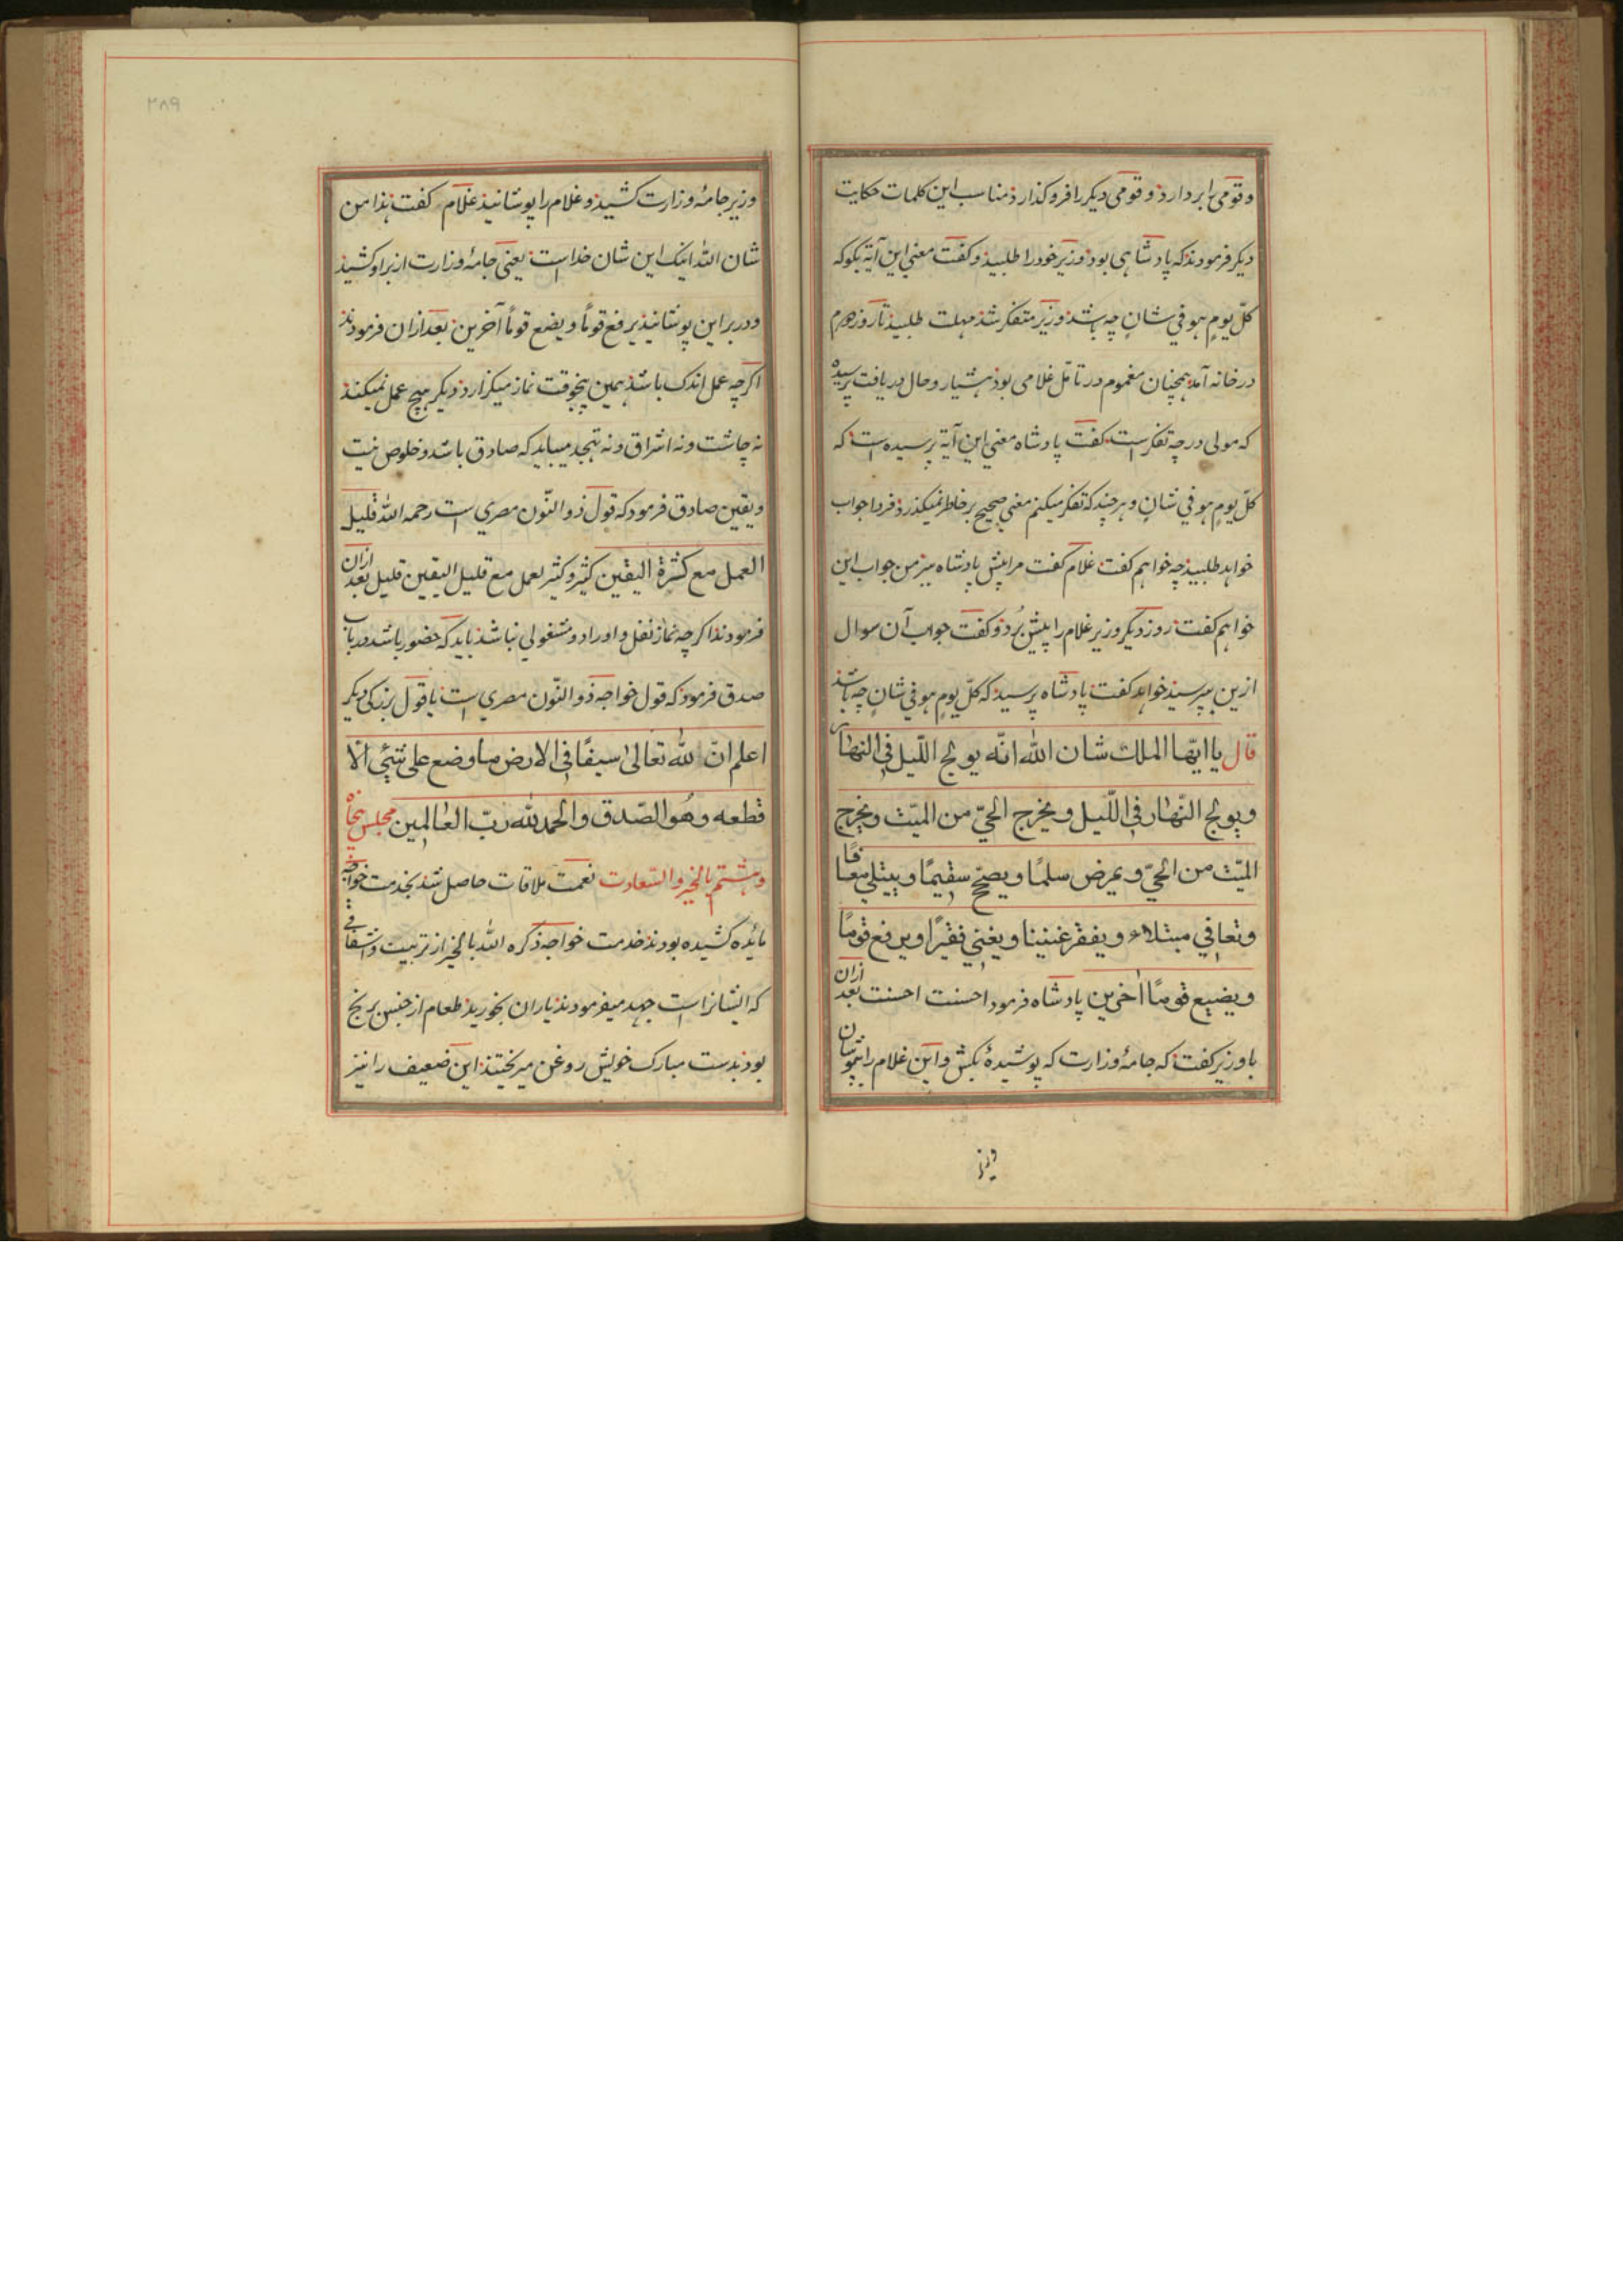 و قومی را بردارد و قومی دیکر را فروکذارد مناسب این کلمات حکایت
دیکر فرمودند که پادشاهی بود وزیر خود را طلبید و کفت معنی این آیة بکو که
کلّ یومٍ هو فی شانٍ چه باشد وزیر متفکر شد مهلت طلبید تا روز
در خانه آمد همچنان مغموم در تامّل غلامی بود هشیار و حال دریافت پرسیده
که مولی در چه تفکر است کفت پادشاه معنی این آیة پرسیده است که
کلّ یومٍ هو فی شانٍ و هر چند که تفکر میکنم معنی صحیح بر خاطر نمیکذرد فردا جواب
خواهد طلبید چه خواهم کفت غلام کفت مرا پیش پادشاه ببر من جواب این
خواهم کفت روز دیکر وزیر غلام را پیش بُرد و کفت جواب آن سوال
ازین بپرسید خواهد کفت پادشاه پرسید که کلّ یومٍ هو فی شانٍ چه باشد
قال یا ایّها الملک شان الله انّه یولج اللّیل فی النهار
و یولج النّهار فی اللّیل و یخرج الحیّ من المیّت و یخرج
المیّت من الحیّ و یمرض سلمًا و یصحّح سقیمًا و یبتلی معافًا
و تعافی مبتلاء و یفقر غنینا و یغنی فقیرًا و یرفع قومًا
و یضیع قومًا اٰخرین پادشاه فرمود احسنت احسنت بعد ازان
با وزیر کفت که جامهٔ وزارت که پوشیدهٔ بکش و این غلام را بپوشان
وزیر
۲۸۹
وزیر جامهٔ وزارت کشید و غلام را پوشانید غلام کفت هذا من
شان الله اینک این شان خدا است یعنی جامهٔ وزارت از بر او کشید
و در بر این پوشانید یرفع قوماً و یضع قوماً آخرین بعد ازان فرمودند
اکر چه عمل اندک باشد همین پنجوقت نماز میکزارد دیکر هیچ عمل نمیکند
نه چاشت و نه اشراق و نه تهجد میباید که صادق باشد و خلوص نیت
و یقین صادق فرمود که قول ذو النّون مصری است رحمه الله قلیل
العمل مع کثرة الیقین کثیر و کثیر لعمل مع قلیل الیقین قلیل بعد ازان
فرمودند اکر چه نماز نفل و اوراد و مشغولی نباشد باید که حضور باشد در باب
صدق فرمود که قول خواجه ذو النّون مصری است یا قول بزرکی دیکر
اعلم انّ لله تعالیٰ سیفًا فی الارض ما وضع علی شیٔ الّا
قطعه و هُو الصّدق و الحمد لله ربّ العالمین مجلس پنجاه
و هشتم بالخیر و السّعادت نعمت ملاقات حاصل شد بخدمت خواجه
مایٔده کشیده بودند خدمت خواجه ذکره الله بالخیر از تربیت و شفقتی
که ایشانرا است جهد میفرمودند یاران بخورید طعام از جنس برنج
بود بدست مبارک خویش روغن میریختند این ضعیف را نیز